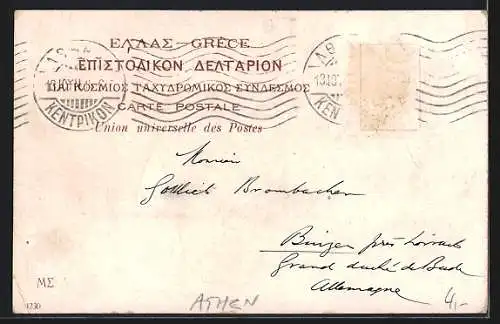 ΕΛΛΑΣ – GRÈCE
ΕΠΙΣΤΟΛΙΚΟΝ ΔΕΛΤΑΡΙΟΝ
ΠΑΓΚΟΣΜΙΟΣ ΤΑΧΥΔΡΟΜΙΚΟΣ ΣΥΝΔΕΣΜΟΣ
CARTE POSTALE
Union universelle des Postes
ΚΕΝΤΡΙΚΟΝ
ΑΘ
ΚΕΝ
Monsieur
Gottlieb Brombacher
Binzen près Lörrach
Grand duché de Bade
Allemagne
ΜΣ
1230
ATHEN
4,-